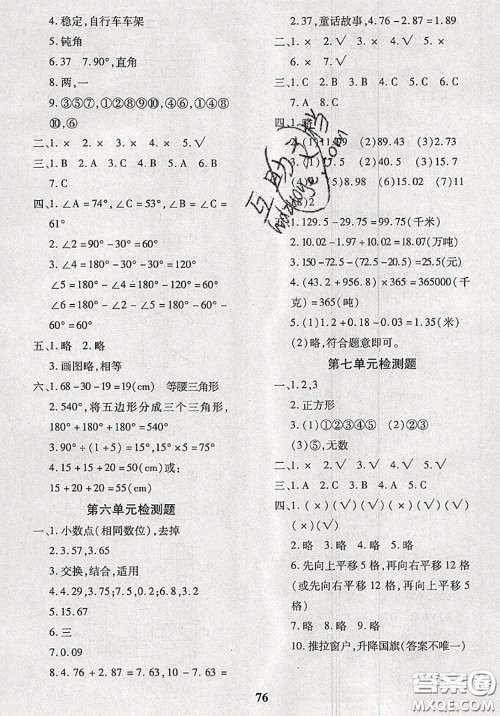 4.稳定,自行车车架
5.钝角
6.37 7.90°,直角
8.两,一
9.③⑤⑦,①②⑧⑨⑩,④⑥,①④⑧
⑩,⑥
二、1.× 2.× 3.× 4.× 5.√
三、1.B 2.A 3.B 4.B 5.C 6.A
7.C
四、1.∠A=74°, ∠C=45°, ∠B=∠C=
61°
2.∠2=90°-30°=60°
∠5=180°-∠4=180°-60°=120°
∠6=180°-∠2-∠5=180°-
60°-90°=30°
五、1.略 2.略
3.画图略,相等
六、1.68-30-19=19(cm) 等腰三角形
2.540°,将五边形分成三个三角形,
180°+180°+180°=540°
3.90°÷(1+5)=15°
4.15+15+20=50(cm)或:
15+20+20=55(cm)
第六单元检测题
一、1.小数点(相同数位),去掉
2.3.57,3.65
3.交换,结合,适用
4.4.29,3.57,4.15,5.01
5.15.67
6.三
7.0.09
8.4.76+2.87=7.63,10.5-7.63=
2.87,童话故事,4.76-2.87=1.89
二、1.× 2.√ 3.√ 4.× 5.×
三、1.C 2.B 3.B 4.C 5.C 6.B
7.A 8.C
四、1.略
(2)89.43 (3)2.73
3.(1)5.5 (2)10.5 (3)15.5
(4)15 (5)8.91 (6)15.02
1.129.5-29.75=99.75(千米)
2.10.02-1.97+10.02=18.07(万吨)
3.150-72.5-(72.5-20)=25(元)
4.(43.2+956.8)×365=365000(千
克)=365(吨)
5.(2)略,符合题意即可。
第七单元检测题
一、1.2,3
2.正方形
3.(1)①②③④⑤ (2)②③
(3)⑤,无数
二、1.× 2.√ 3.× 4.√ 5.×
三、1.A 2.C 3.A 4.B 5.C
四、1.(×)(√)(√)(×)(√)(√)
(×)(×)(√)(√)(×)(√)
2.略 3.略 4.略 5.略
6.先向上平移5格,再向右平移12格
(或先向右平移12格,再向上平移
5格)
7.略 8.略 9.略
10.推拉窗户,升降国旗(答案不唯一)
76